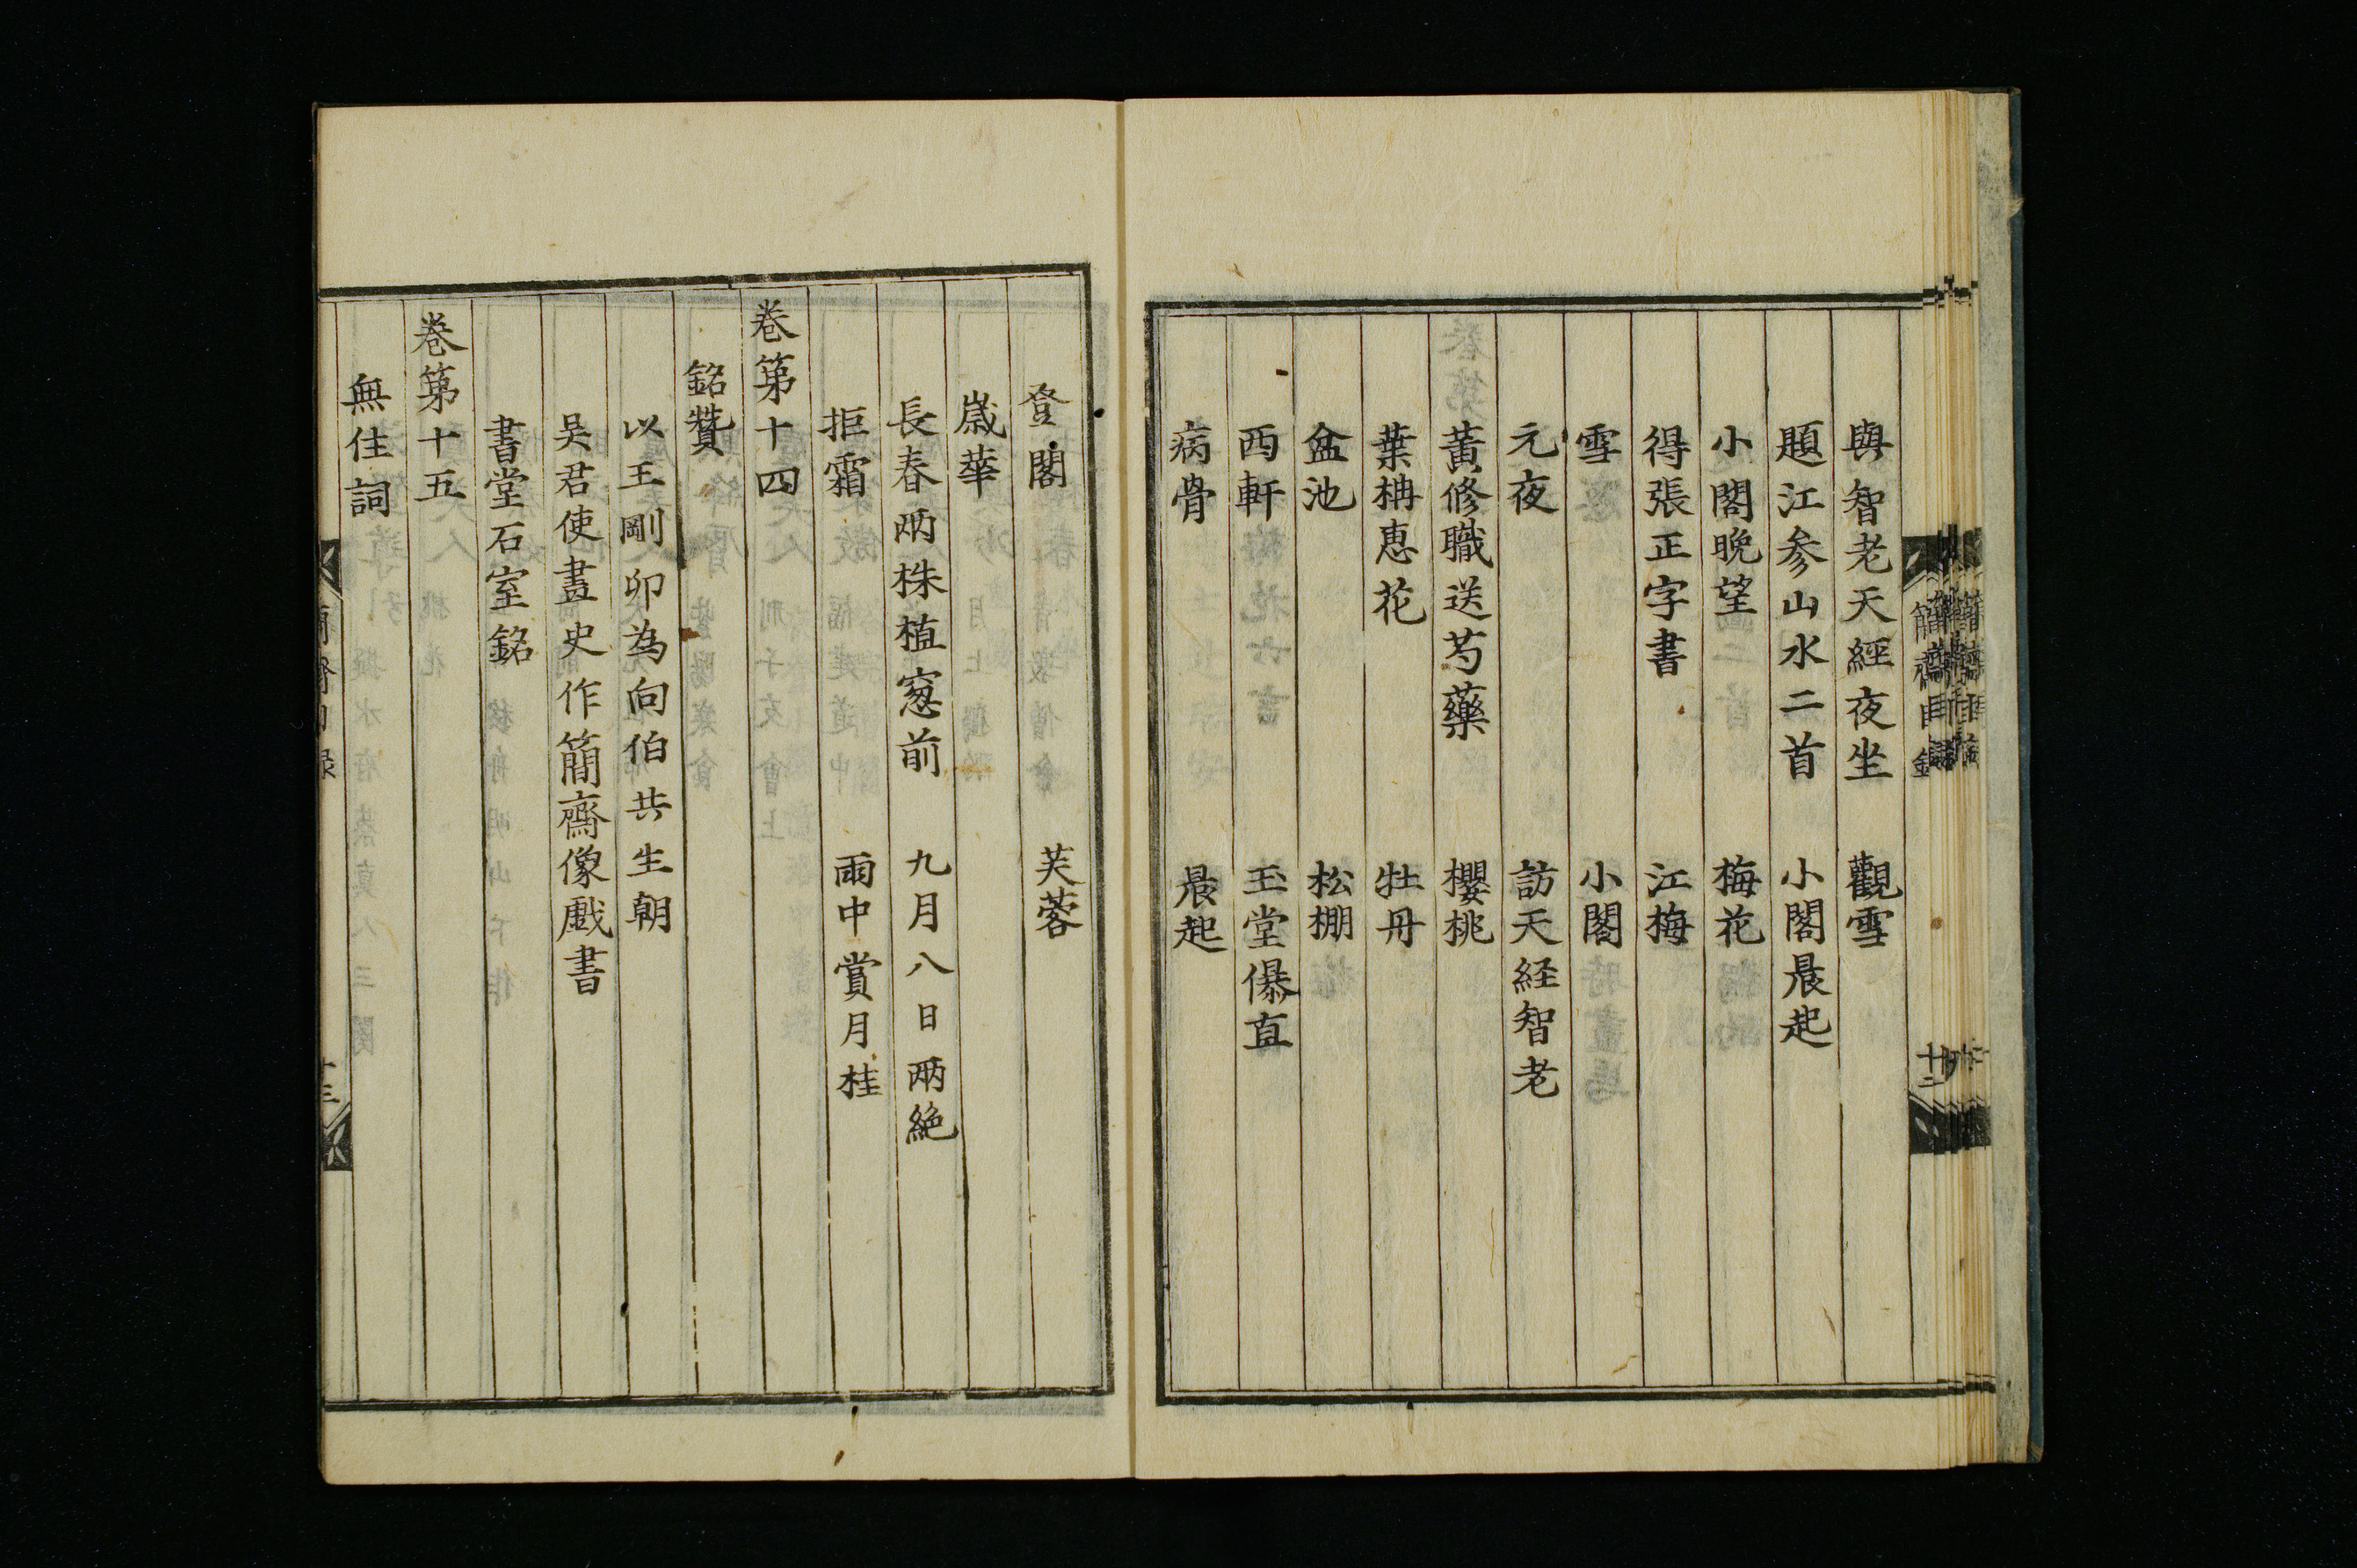 與智老天經夜坐　觀雪
題江参山水二首　小閣晨起
小閣晚望　梅花
得張正字書　江梅
雪　小閣
元夜　訪天経智老
黃修職送芍藥　櫻桃
葉柟惠花　牡丹
盆池　松棚
西軒　玉堂儤直
病骨　晨起
登閣　芙蓉
歲華
長春兩株植窓前　九月八日兩絶
拒霜　雨中賞月桂
卷第十四
銘贊
以王剛卯為向伯共生朝
吴君使畫史作簡齋像戲書
書堂石室銘
卷第十五
無住詞
簡齋目録
十三